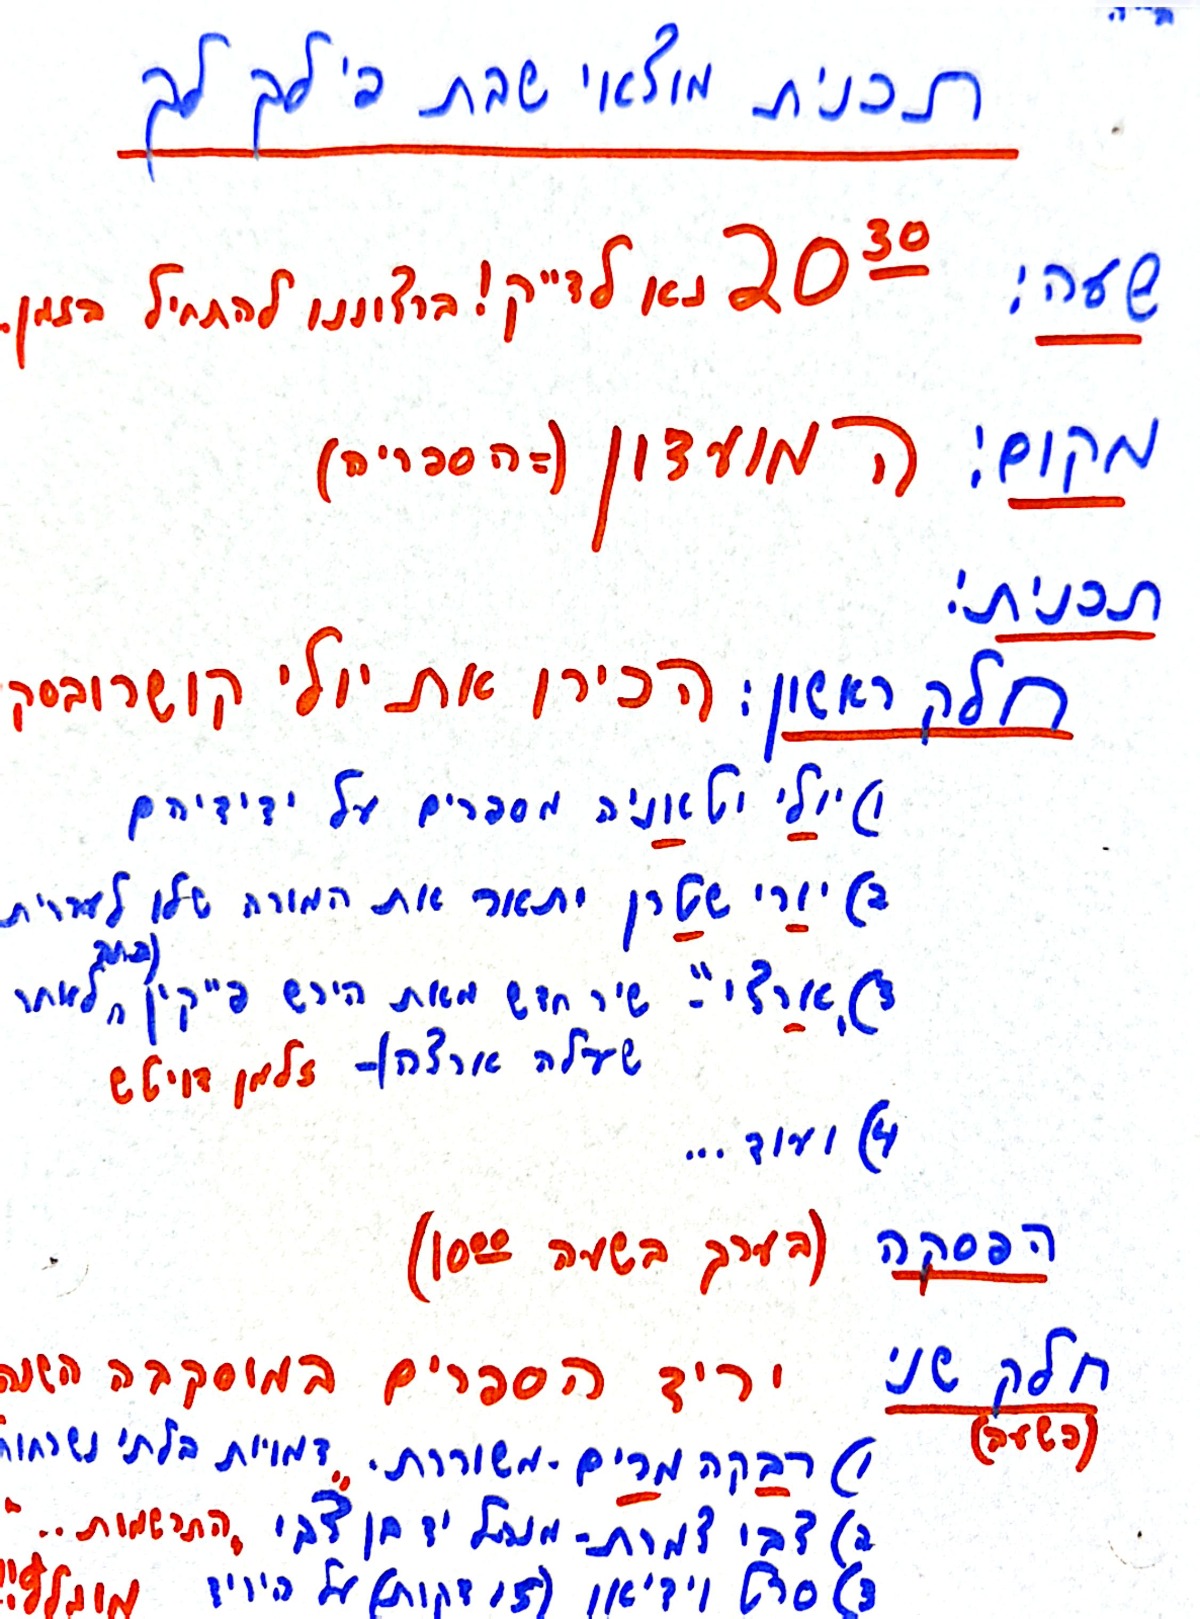 ב"ה
תכנית מוצאי שבת פ' לך לך
שעה: 20³⁰ נא לדייק! ברצוננו להתחיל בזמן.
מקום: המועדון (=הספריה)
תכנית:
חלק ראשון: הכירו את יולי קושרובסק
1) יולי וטאניה מספרים על ידידיהם
2) יורי שטרן יתאר את המורה שלו לעברית
3) "ארצי" = שיר חדש מאת הירש פ"קין
לאחר
שעלה ארצה) - זלמן דויטש
4) ועוד...
הפסקה (בערך בשעה 10⁰⁰)
חלק שני יריד הספרים במוסקבה השנה
1) רבקה מרים - משוררת. "דמויות בלתי נשכחות
2) צבי צמרת - מנהל יד בן צבי "התרשמות...
3) סרט וידיאו (15 דקות) על היריד